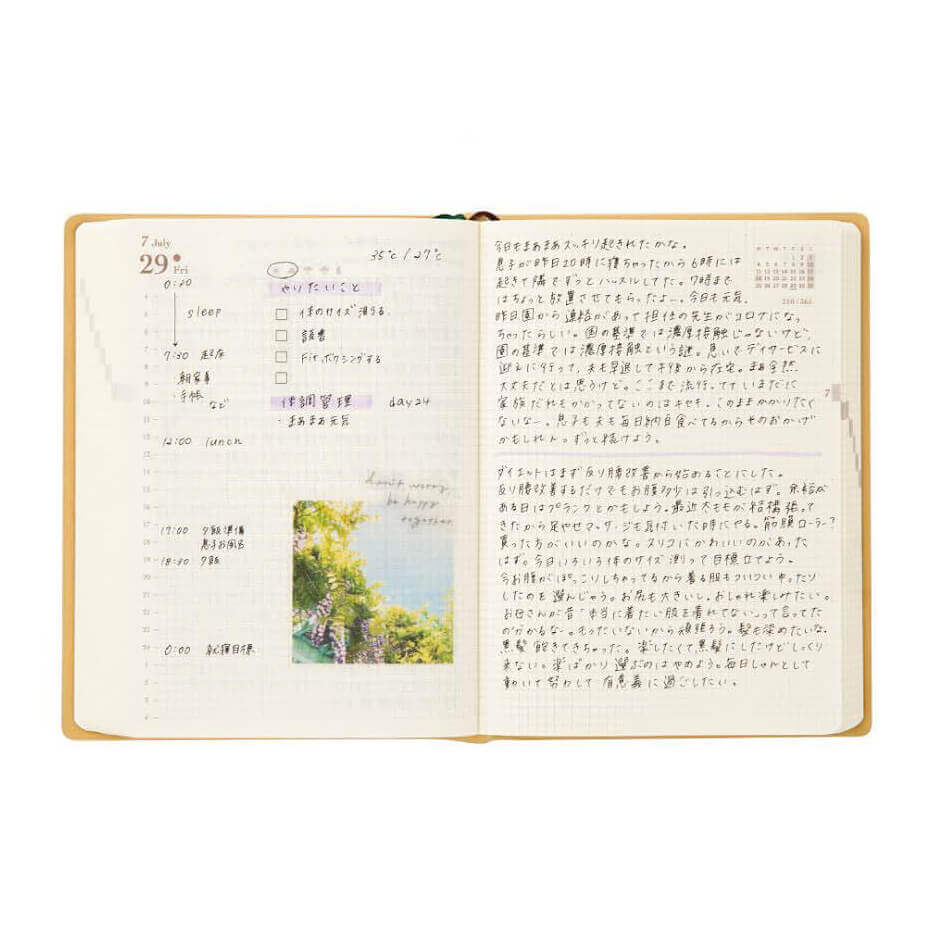 7 July
29 Fri
35℃ / 27℃
0:20
sleep
7:30 起床
朝家事
・手帳
など
12:00 lunch
17:00 夕飯準備
息子お風呂
18:30 夕飯
0:00 就寝目標
やりたいこと
体のサイズ測る
読書
Fitボクシングする
体調管理 day24
・まあまあ元気
don't worry,
be happy
together
今日もまあまあスッキリ起きれたかな。
息子が昨日20時に寝ちゃったから6時には
起きて隣でずっとハッスルしてた。7時まで
はちょっと放置させてもらったよー。今日も元気。
昨日園から連絡があって担任の先生がコロナになっ
ちゃったらしい。国の基準では濃厚接触じゃないけど、
園の基準では濃厚接触という謎。急いでデイサービスに
迎えに行って、夫も早退して午後から在宅。まあ全然
大丈夫だとは思うけど。ここまで流行ってていまだに
家族だれもかかってないのはキセキ。このままかかりたく
ないなー。息子も夫も毎日納豆食べてるからそのおかげ
かもしれん。ずっと続けよう。
ダイエットはまず反り腰改善から始めることにした。
反り腰改善するだけでもお腹多少は引っ込むはず。余裕が
ある日はプランクとかもしよう。最近太ももが結構張って
きたから足やせマッサージも気付いた時にやる。筋膜ローラー?
買った方がいいのかな。スリコにかわいいのがあった
はず。今日いろいろ体のサイズ測って目標立てよう。
今お腹がぽっこりしちゃってるから着る服もついついゆったり
したのを選んじゃう。お尻も大きいし。おしゃれ楽しみたい。
お母さんが昔「本当に着たい服を着れてない」って言ってた
のがわかるな〜。もったいないから頑張ろう。髪も染めたいな。
黒髪飽きてきちゃった。楽したくて黒髪にしたけどしっくり
来ない。楽ばかり選ぶのはやめよう。毎日しゃんとして
動いて努力して有意義に過ごしたい。